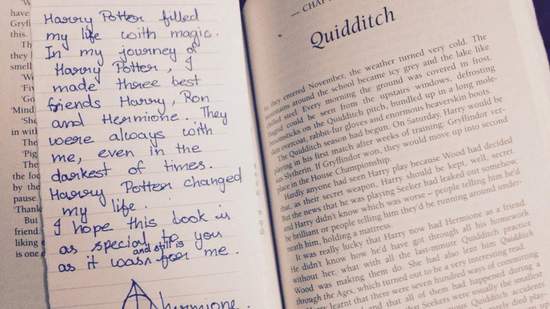 have
Gryf
this.
Th
they
smell
'W
'Fiv
'Go
'Mind
'She
in with
The
'Pig
The
the foo
by the
pause.
Thank
But
friend.
liking
is one a
Harry Potter filled
my life with magic.
In my journey of
Harry Potter, I
made three best
friends Harry, Ron
and Hermione. They
were always with
me, even in the
darkest of times.
Harry Potter changed
my life.
I hope this book is
as special to you
as it was and still is for me.
hermione.
— CHAP
Quidditch
they entered November, the weather turned very cold. The
mountains around the school became icy grey and the lake like
steel. Every morning the ground was covered in frost.
Hagrid could be seen from the upstairs windows, defrosting
broomsticks on the Quidditch pitch, bundled up in a long mole
overcoat, rabbit-fur gloves and enormous beaverskin boots.
The Quidditch season had begun. On Saturday, Harry would be
playing in his first match after weeks of training: Gryffindor ver-
Slytherin. If Gryffindor won, they would move up into second
place in the House Championship.
Hardly anyone had seen Harry play because Wood had decided
that, as their secret weapon, Harry should be kept, well, secret.
But the news that he was playing Seeker had leaked out somehow,
and Harry didn't know which was worse – people telling him he'd
be brilliant or people telling him they'd be running around under-
neath him, holding a mattress.
It was really lucky that Harry now had Hermione as a friend.
He didn't know how he'd have got through all his homework
without her, what with all the last-minute Quidditch practice
Wood was making them do. She had also lent him Quidditch
through the Ages, which turned out to be a very interesting read.
Harry learnt that there were seven hundred ways of committing
and that all of them had happened during a
that Seekers were usually the smallest
Quidditch accidents
rarely died play-